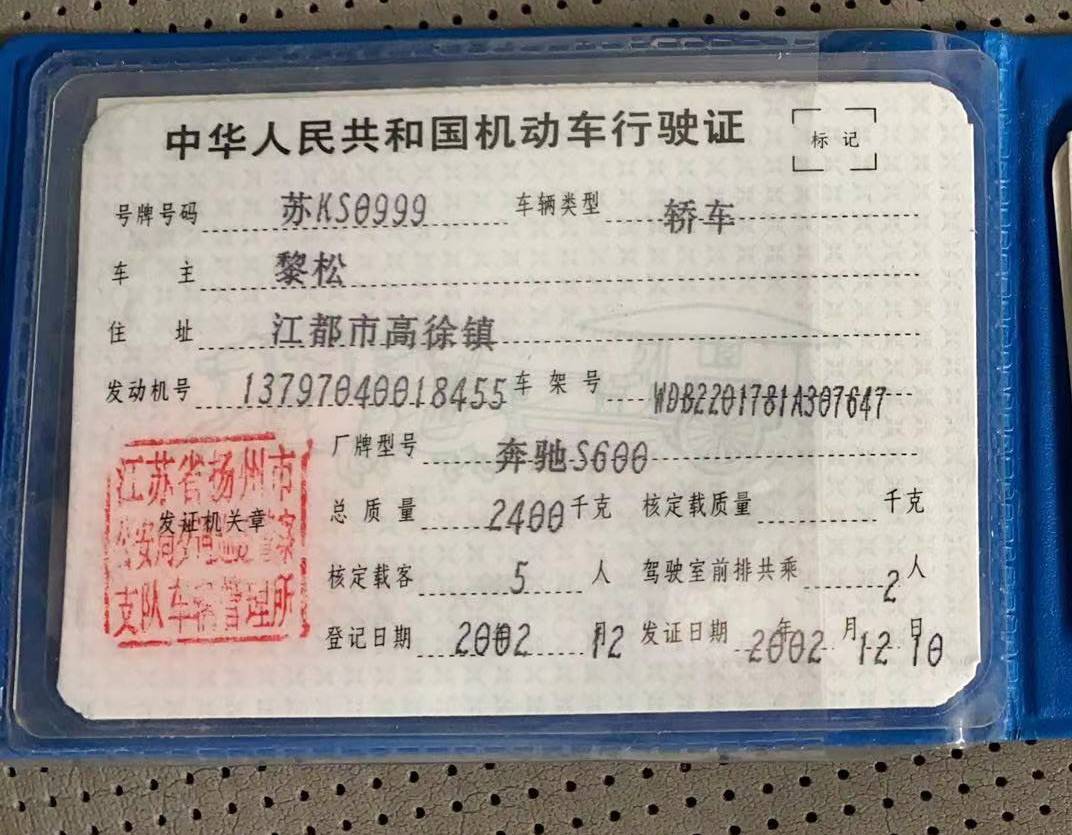 中华人民共和国机动车行驶证 标记
号牌号码 苏KS0999 车辆类型 轿车
车主 黎松
住址 江都市高徐镇
发动机号 13797040018455 车架号 WDB2201781A307647
厂牌型号 奔驰S600
总质量 2400千克 核定载质量 千克
核定载客 5 人 驾驶室前排共乘 2人
登记日期 2002年 月12 发证日期 2002年 月12 日10
江苏省扬州市
公安局交通巡逻警察
支队车辆管理所
发证机关章